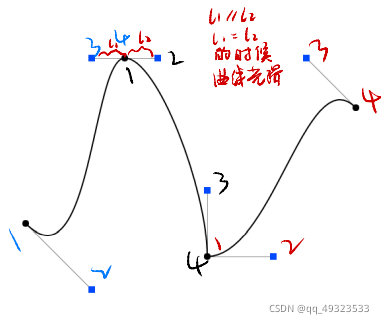 l₁ // l₂
l₁ = l₂
的时候
曲线光滑
3 4 l₁ l₂ 2
1
3
4
3
1 2
4 1 2
CSDN @qq_49323533